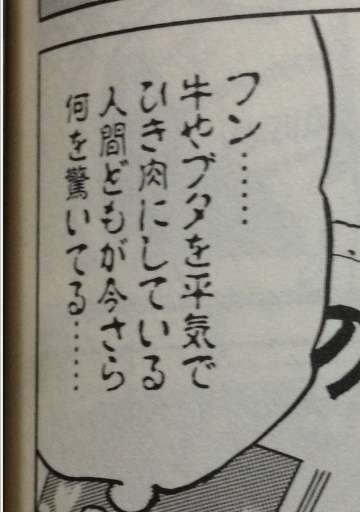 フン………
牛やブタを平気で
ひき肉にしている
人間どもが今さら
何を驚いてる………
の